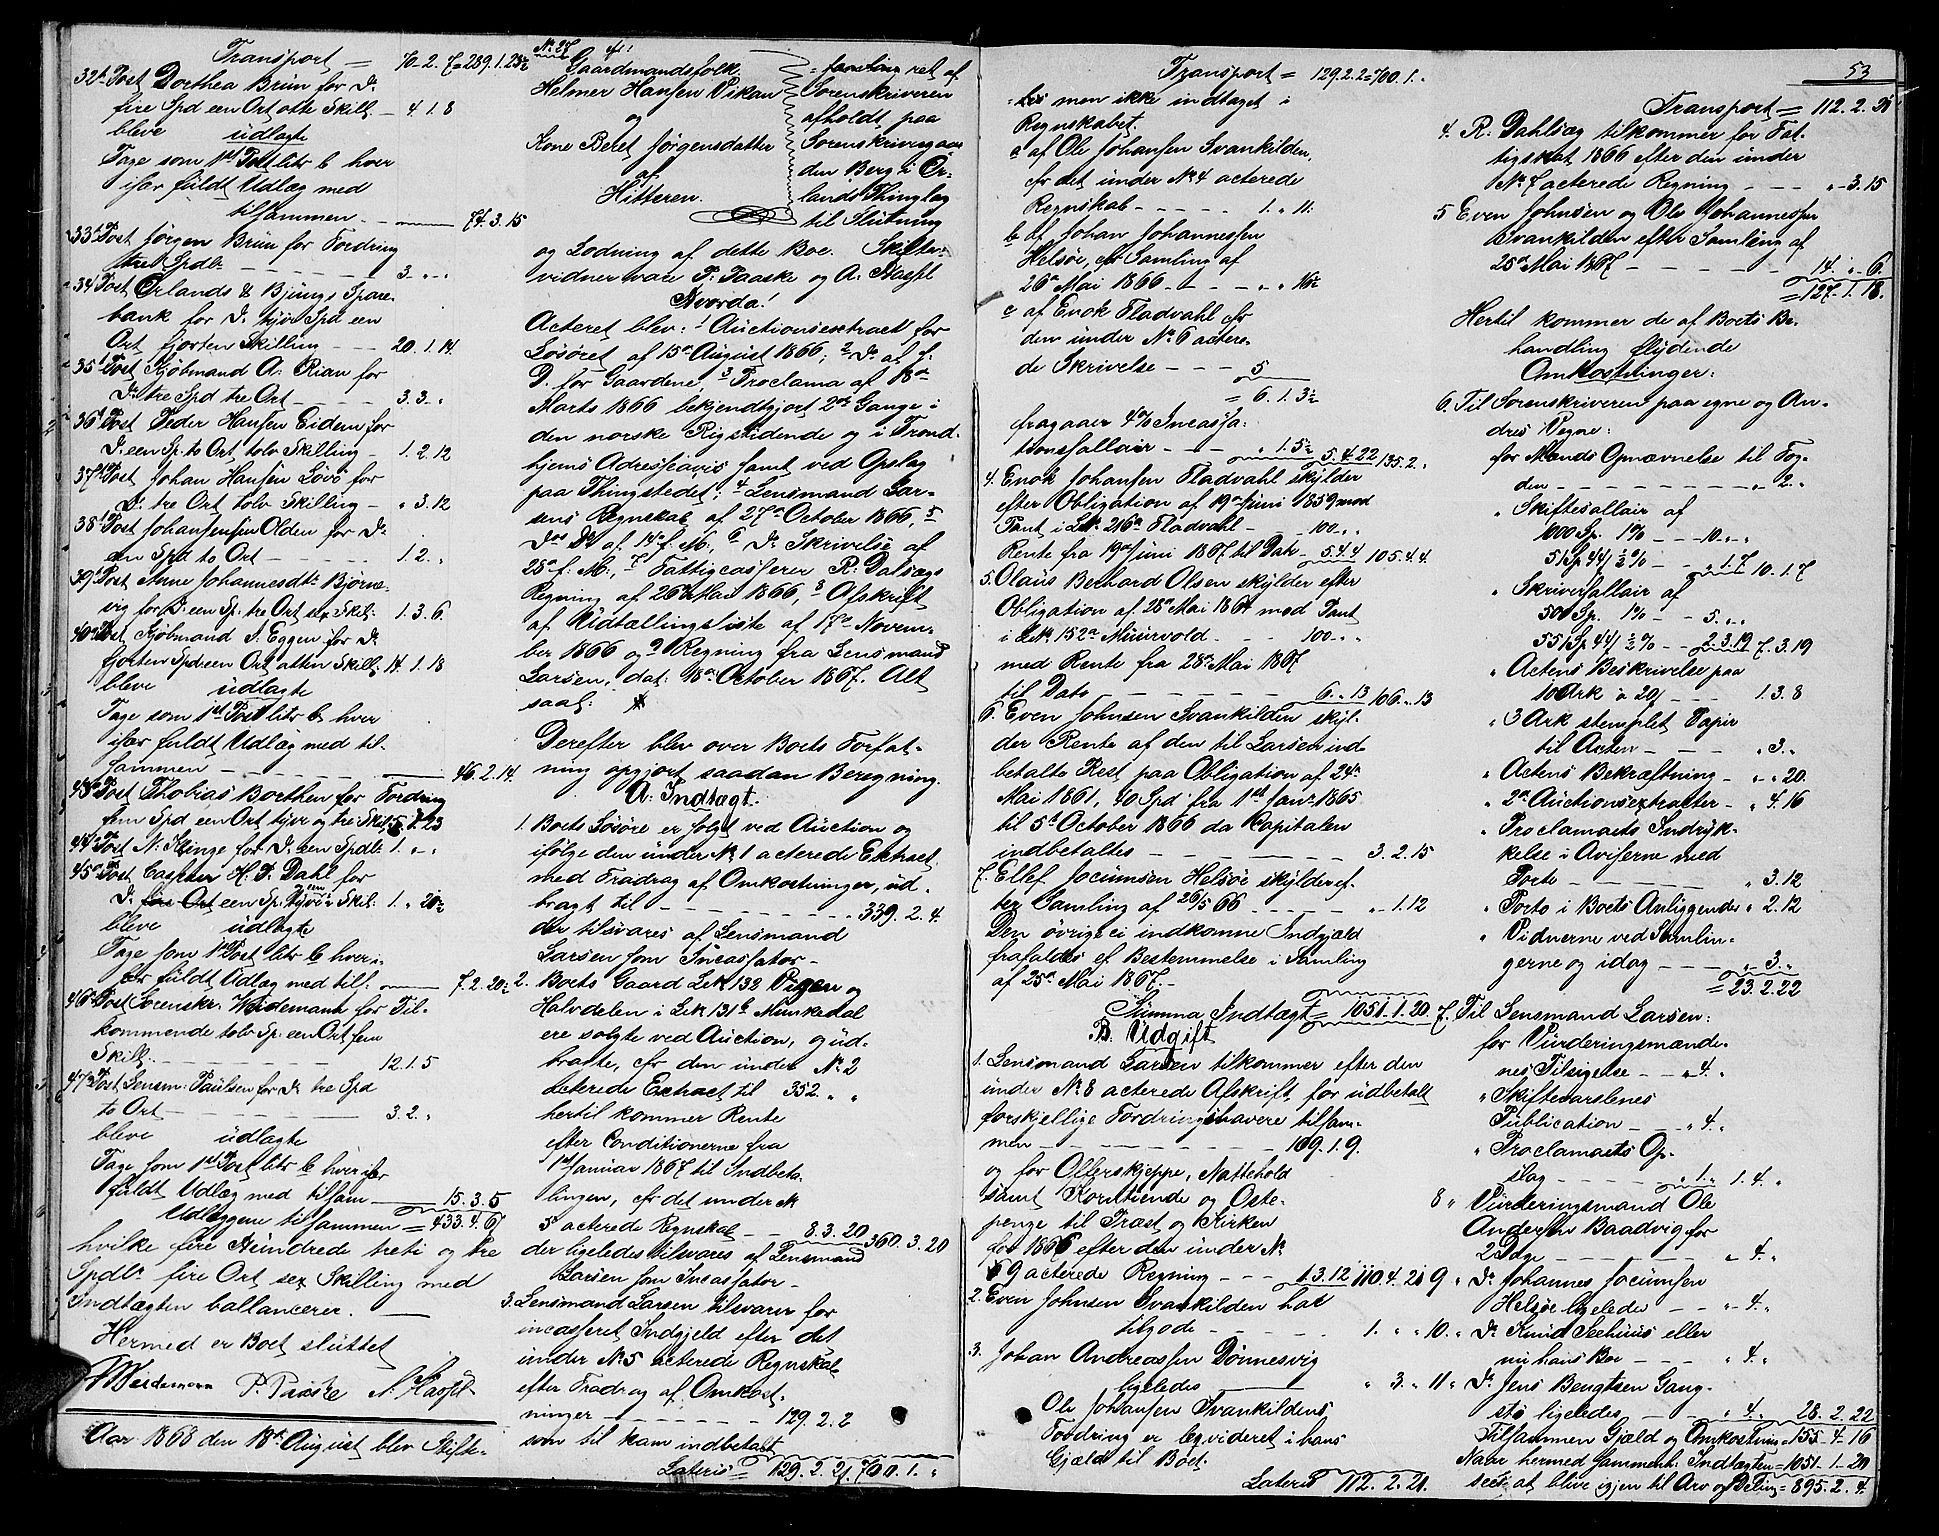 Transport = 70. 2. 7 = 289. 1. 23½
32te Post Dorthea Brün for Do
fire Spd een Ort otte Skill. - 4. 1. 8
bleve udlagte
Tage som 1st Post litr b hver
især fuldt Udlæg med
tilsammen - 74. 3. 15
33te Post Jørgen Brün for Fordring
tre Spdlr - - - 3. " "
34te Post Ørlands & Bjugns Spare-
bank for Do tyve Spd een
Ort fjorten Skilling - - - 20. 1. 14.
35te Post Kjøbmand A. Rian for
Do tre Spd tre Ort - - - 3. 3. "
36te Post Peder Hansen Eidem for
Do een Sp. to Ort tolv Skilling - 1. 2. 12
37te Post Johan Hansen Løvø for
Do tre Ort tolv Skilling - " 3. 12
38te Post Johansen Olden for Do
een Spd to Ort - - - 1. 2. "
39te Post Anne Johannesdtr Bjørne-
vig for Do een Sp. tre Ort sex Skil: 1. 3. 6
40de Post Kjøbmand P. Eggen for Do
fjorten Spd een Ort atten Skill. 14. 1. 18
bleve udlagte
Tage som 1st Post litr b hver
især fuldt Udlæg med til-
sammen - - - 46. 2. 14.
43de Post Thobias Boethen for Fordring
fem Spd een Ort tyve og tre Skil: 5. 1. 23
44de Post N. Stenge for Do een Spdlr 1. " "
45de Post Casper H. P. Dahl for
Do een Sp. tyve Skil: 1. " 20½
bleve udlagte
Tage som 1st Post litr b hver i-
sær fuldt Udlæg med till: 7. 2. 20½
46de Post Sorenskr. Weidemann for Til-
kommende tolv Sp. een Ort fem
Skill. - - - 12. 1. 5
47de Post Lensm: Paulsen for Do tre Spd
to Ort - - - 3. 2. "
bleve udlagte
Tage som 1st Post litr b hver især
fuldt Udlæg med tilsam - 15. 3. 5
Udlæggene tilsammen = 433. 4. 6
hvilke fire Hundrede treti og tre
Spdlr fire Ort sex Skilling med
Indtægten ballancerer.
Hermed er Boet sluttet
Weidemann P. Paaske A. Hassel
Aar 1868 den 18de August blev Skifte-
No 27
Gaardmandsfolk
Helmer Hansen Vikan
og
Kone Beret Jørgensdatter
af
Hitteren.
- samling ret af
Sorenskriveren
afholdt paa
Sorenskrivergaar
den Berg i Ør-
lands Thinglag
til Slutning
og Lodning af dette Boe. Skifte-
vidner vare P. Paaske og A. Hassel
Hvorda!
Acteret blev: 1 Auctionsextract for
Løsøret af 15de August 1866, 2 Do af s.
D. for Gaardene, 3 Proclama af 18de
Marts 1866 bekjendtgjort 2de Gange i
den norske Rigstidende og i Trond-
hjems Adresseavis samt ved Opslag
paa Thingstedet, 4 Lensmand Lar-
sens Regnskab af 27de October 1866, 5
Dos Do af 14de s. M., 6 Do Skrivelse af
28de s. M., 7 Fattigcasserer R. Dalsægs
Regning af 26de Mai 1866, 8 Afskrift
af Udtællingsliste af 17de Novem-
ber 1866 og 9 Regning fra Lensmand
Larsen, dat: 18de October 1867. Alt
saal:
Derefter blev over Boets Forfat-
ning opgjort saadan Beregning.
A. Indtægt.
1. Boets Løsøre er solgt ved Auction og
ifølge den under No 1 acterede Extract
med Fradrag af Omkostninger, ud-
bragt til - - - 339. 2. 4.
der tilsvares af Lensmand
Larsen som Incassator -
2. Boets Gaard L.No 132 Vigen og
Halvdelen i L.No 131b Munkedal
ere solgte ved Auction, og ud-
bragte, cfr den under No 2
acterede Extract til 352. " "
hertil kommer Rente
efter Conditionerne fra
1st Januar 1867 til Indbeta-
lingen, cfr det under No
5 acterede Regnskab - - 8. 3. 20 360. 3. 20
der ligeledes tilsvares af Lensmand
Larsen som Incassator -
3. Lensmand Larsen tilsvarer for
incasseret Indgjeld efter det
under No 5 acterede Regnskab
efter Fradrag af Omkost-
ninger - - - 129. 2. 2
som til ham indbetalt
Lateris = 129. 2. 2. 700. 1. "
Transport = 129. 2. 2 = 700. 1. "
- tes men ikke indtaget i
Regnskabet.
a af Ole Johansen Svankilden,
cfr det under No 4 acterede
Regnskab - - - 1. " 11.
b af Johan Johannessen
Helsøe, cfr Samling af
26de Mai 1866 - - - " " 16½
c af Enok Fladvahl cfr
den under No 6 actere-
de Skrivelse - - - 5
= 6. 1. 3½
fragaaer 4% Incassa-
tionssallair - - " 1. 5½ 5. 4. 22 135. 2. "
4. Enok Johansen Fladvahl skylder
efter Obligation af 19de Juni 1859 mod
Pant i L.No 216a Fladvahl - 100. " "
Rente fra 19de Juni 1867 til Dato - 5. 4. 4 105. 4. 4.
5. Olaus Berhard Olsen skylder efter
Obligation af 28de Mai 1864 mod Pant
i L.No 152a Muurvold - - - 100. " "
med Rente fra 28de Mai 1867
til Dato - - - 6. " 13 106. " 13
6. Even Johnsen Svankilden skyl-
der Rente af den til Larsen ind-
betalte Rest paa Obligation af 24de
Mai 1861, 40 Spd fra 1st Janr 1865
til 5te October 1866 da Capitalen
indbetaltes - - - 3. 2. 15
7. Ellef Jocumsen Helsøe skylder ef-
ter Samling af 26/5 66 - - - " 1. 12
Den øvrige ei indkomne Indgjæld
frafaldes ef Bestemmelse i Samling
af 25de Mai 1867. -
Summa Indtægt = 1051. 1. 20.
B. Udgift
1. Lensmand Larsen tilkommer efter den
under No 8 acterede Afskrift for udbetalt
forskjellige Fordringshavere tilsam-
men - - - 109. 1. 9.
og for Offerskjeppe, Nattehold
samt Korntiende og Oste-
penge til Præst og Kirken
for 1866 efter den under No
9 acterede Regning - - - 1. 3. 12 110. 4. 21
2. Even Johnsen Svankilden har
tilgode - - - 1. " "
3. Johan Andreassen Dønnesvig
ligeledes " 3. "
Ole Johansen Svankildens
Fordring er liqvideret i hans
Gjæld til Boet.
Lateris 112. 2. 21.
53
Transport = 112. 2. 21
4. R. Dahlsæg tilkommer for Fat-
tigskat 1866 efter den under
No 7 acterede Regning - - - " 3. 15
5 Even Johnsen og Ole Johannessen
Svankilden efter Samling af
25de Mai 1867 - - - 14. " 6.
= 127. 1. 18.
Hertil kommer de af Boets Be-
handling flydende
Omkostninger:
6. Til Sorenskriveren paa egne og An-
dres Vegne:
for Mænds Opnævnelse til Fog-
den - - - " 2. "
" Skiftesallair af
1000 Sp. 1% - - - 10. " "
51 Sp 44/ ½% - - " 1. 7 10. 1. 7
" Skriversallair af
500 Sp. 1% - - 5. " "
551 Sp 44/ ½% - - 2. 3. 19 7. 3. 19
" Actens Beskrivelse paa
10 Ark à 20/ - - 1. 3. 8
" 3 Ark stemplet Papir
til Acten - - - " 3. "
" Actens Bekræftning - " " 20.
" 2de Auctionsextracter - " 4. 16
" Proclamaets Indryk-
kelse i Aviserne med
Porto - - - " 3. 12
" Porto i Boets Anliggender " 2. 12
" Vidnerne ved Samlin-
gerne og idag - - - " 3. "
= 23. 2. 22
7. Til Lensmand Larsen:
for Vurderingsmænde-
nes Tilsigelse - - " 4. "
" Skiftevarslenes
Publication - - - " 4. "
" Proclamaets Op-
slag - - - " 1. " 1. 4. "
8 " Vurderingsmand Ole
Andersen Baadvig for
2 Dage - - - " 4. "
9 " Do Johannes Jocumsen
Helsøe ligeledes - - " 4. "
10. " Do Knud Seehuus eller
nu hans Boe - - - " 4. "
11 " Do Jens Bengtsen Gang-
stø ligeledes - - - " 4. " 28. 2. 22
Tilsammen Gjæld og Omkostning = 155. 4. 16
Naar hermed sammenh. Indtægten = 1051. 1. 20
sees at blive igjen til Arv og Deling = 895. 2. 4.